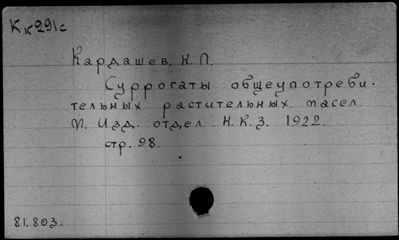 Кк291с
Кардашев, Н. П.
Суррогаты общеупотреби-
тельных растительных масел.
М. Изд. отдел Н.К.З. 1922.
стр. 98.
81.803.